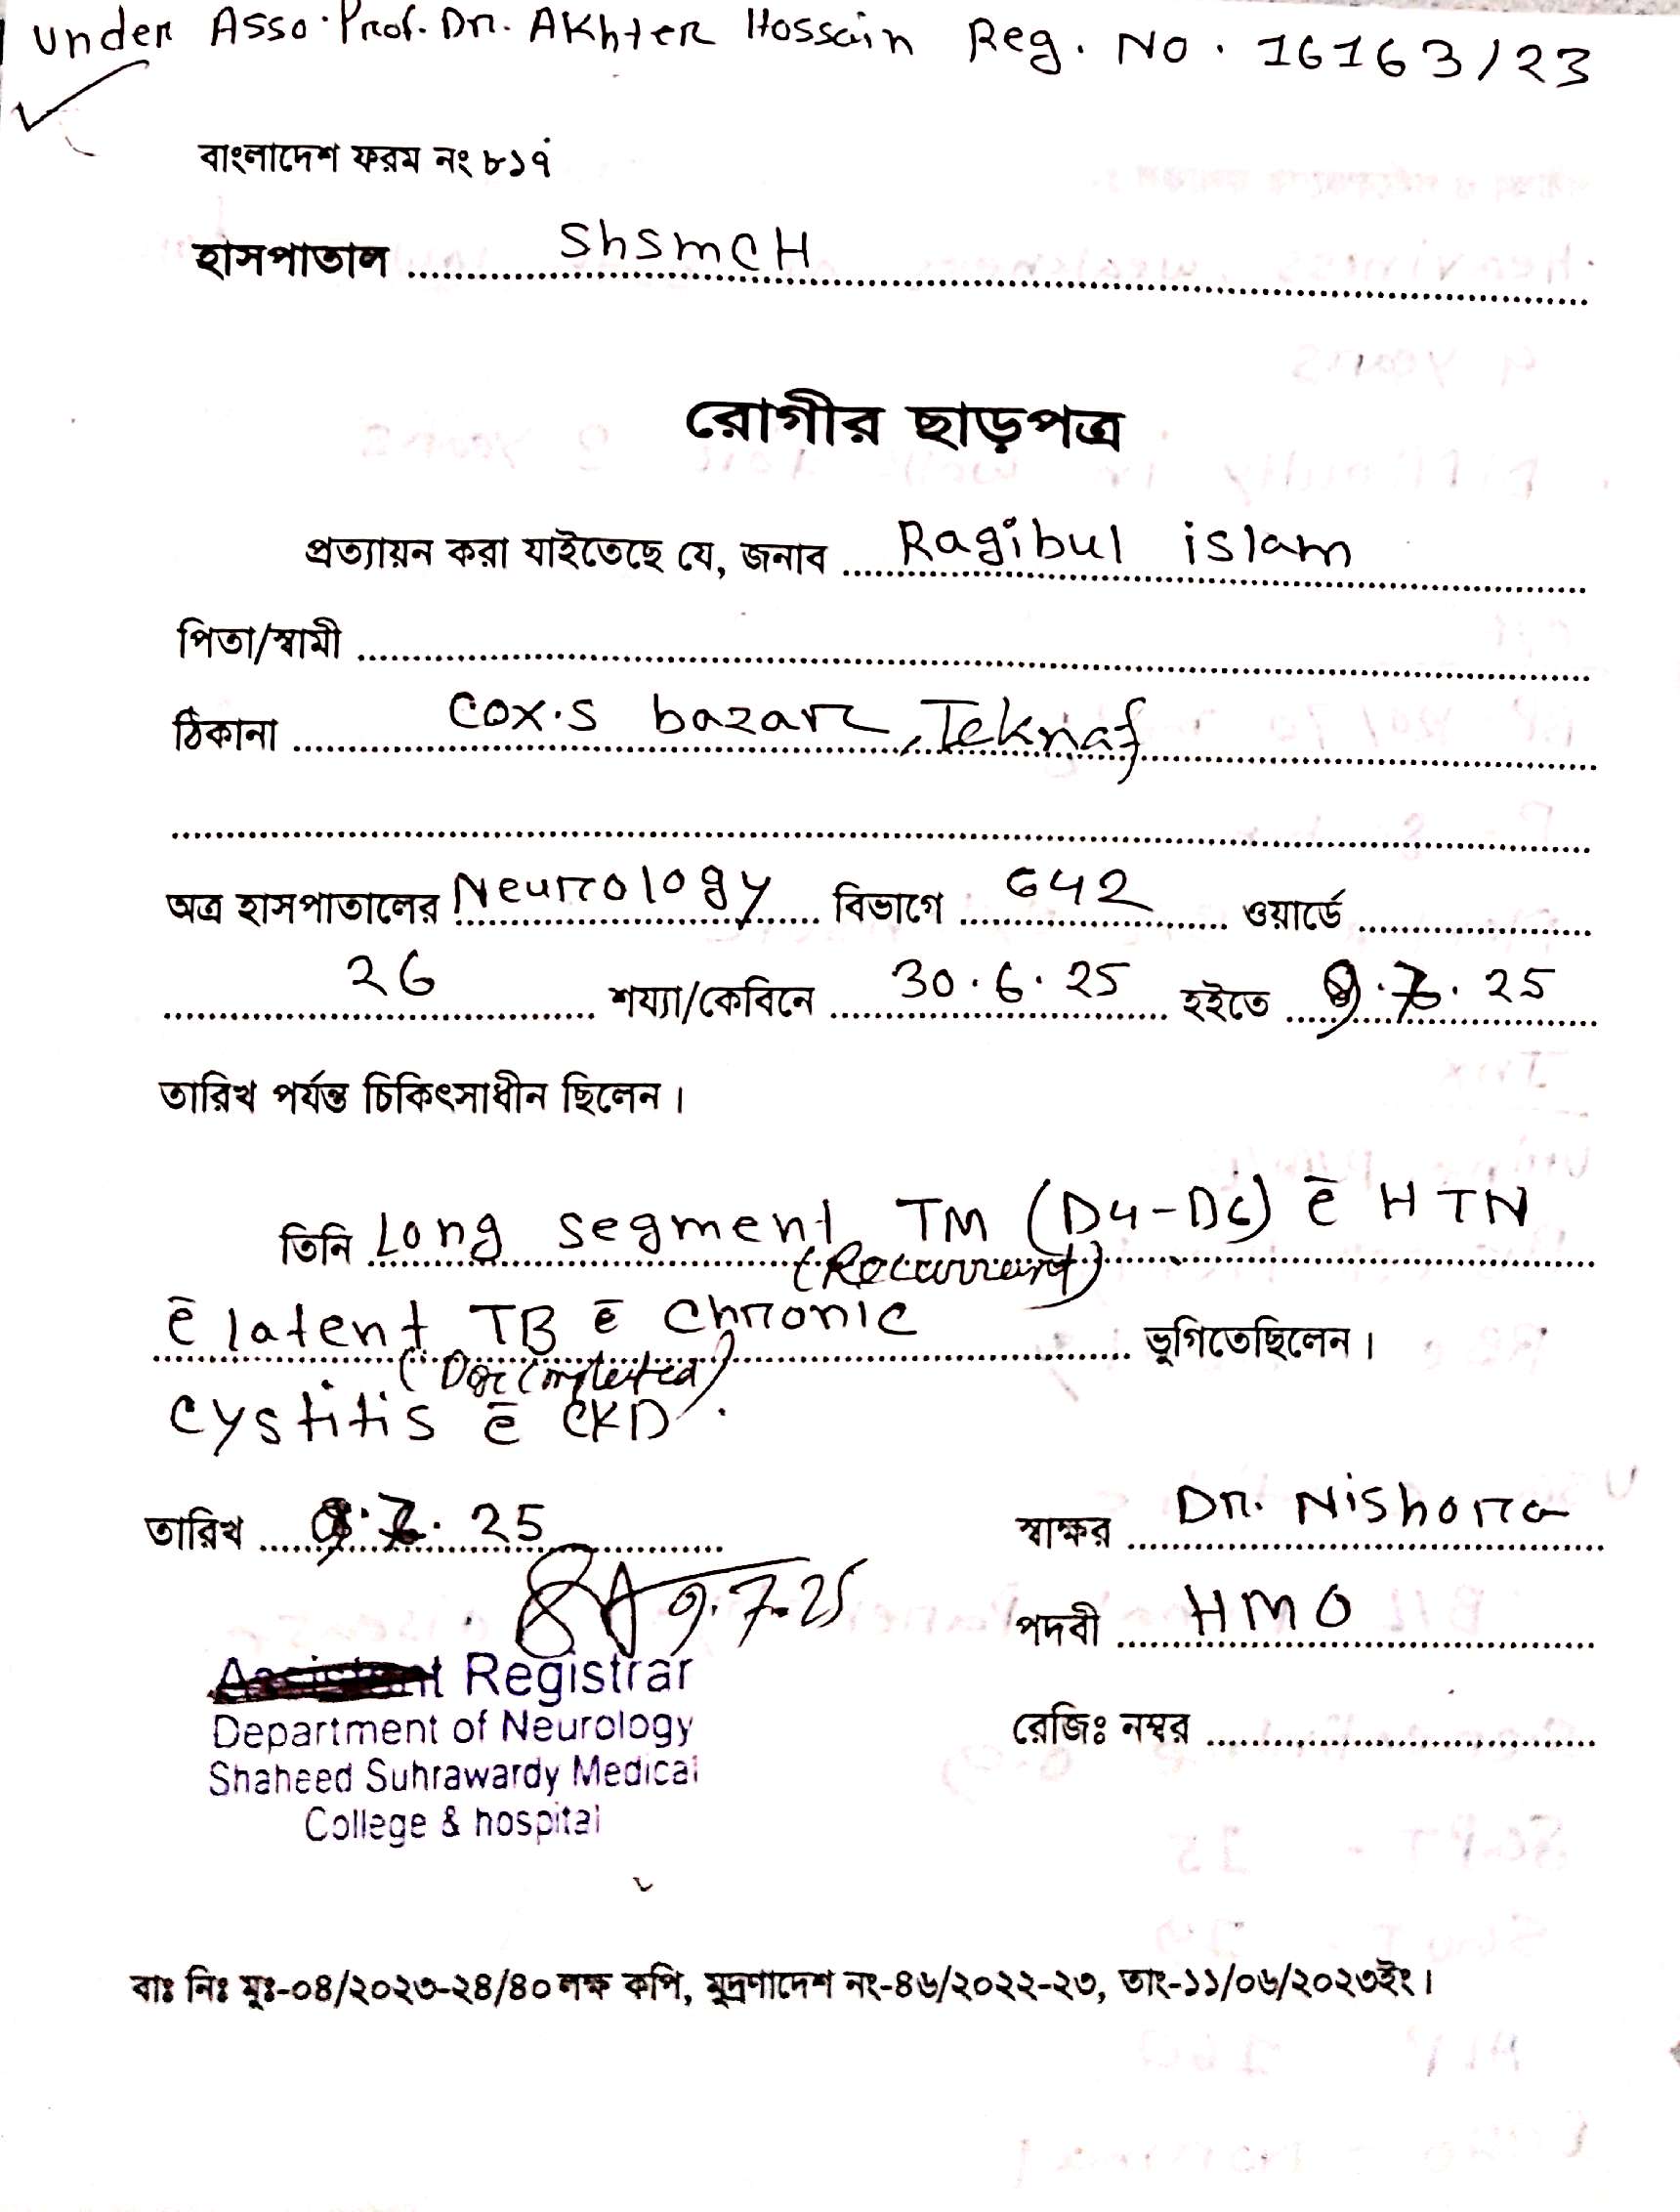 under Asso. Prof. Dr. Akhter Hossain Reg. No. 16163/23
বাংলাদেশ ফরম নং ৮১৭
হাসপাতাল ShSMCH
রোগীর ছাড়পত্র
প্রত্যায়ন করা যাইতেছে যে, জনাব Ragibul islam
পিতা/স্বামী
ঠিকানা Cox.s bazar, Teknaf
অত্র হাসপাতালের Neurology বিভাগে 642 ওয়ার্ডে
26 শয্যা/কেবিনে 30.6.25 হইতে 9.7.25
তারিখ পর্যন্ত চিকিৎসাধীন ছিলেন।
তিনি Long segment TM (D4-D6) ē HTN
(Recurrent)
ē latent TB ē Chronic ভুগিতেছিলেন।
cystitis ē CKD.
তারিখ 9.7.25 স্বাক্ষর Dr. Nishora
9.7.25
পদবী HMO
Registrar
Department of Neurology
রেজিঃ নম্বর
Shaheed Suhrawardy Medical
College & hospital
বাঃ নিঃ মুঃ-০৪/২০২৩-২৪/৪০ লক্ষ কপি, মুদ্রণাদেশ নং-৪৬/২০২২-২৩, তাং-১১/০৬/২০২৩ইং।